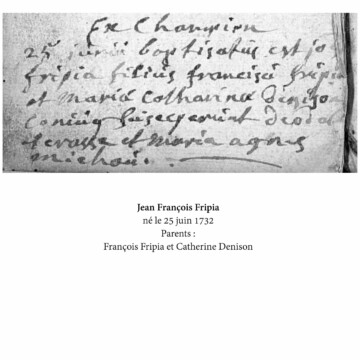 Ex Champion
25ª junii baptisatus est jo
fripia filius francisci fripia
et maria Catharina denison
coniug susceperunt deodat
et maria agnes
michou.
Jean François Fripia
né le 25 juin 1732
Parents :
François Fripia et Catherine Denison